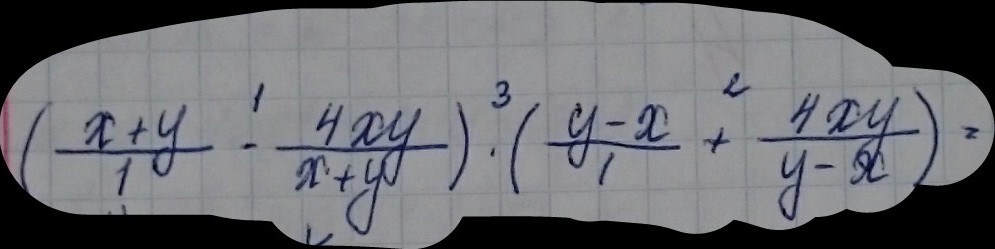 ( (x+y)/1 -¹ 4xy/(x+y) ) ·³ ( (y-x)/1 +² 4xy/(y-x) ) =